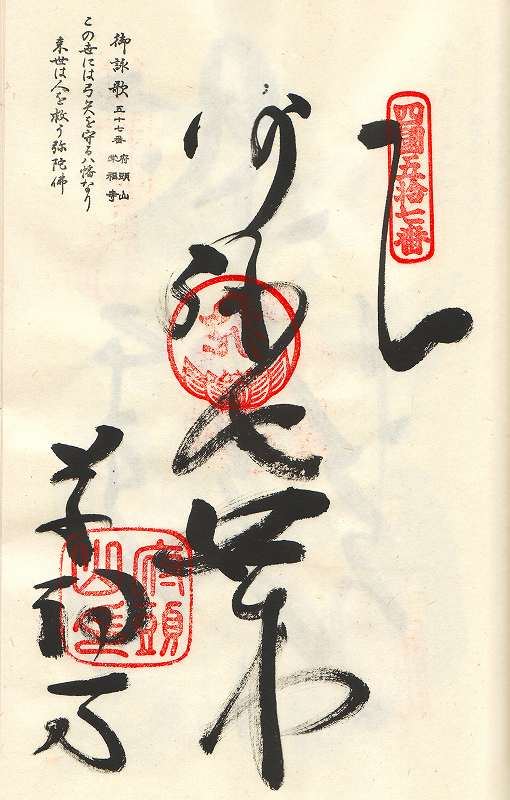 四國五拾七番
奉
阿弥陀如来
栄福寺
府頭山
御詠歌 五十七番 府頭山 栄福寺
この世には弓矢を守る八幡なり
来世は人を救う弥陀佛